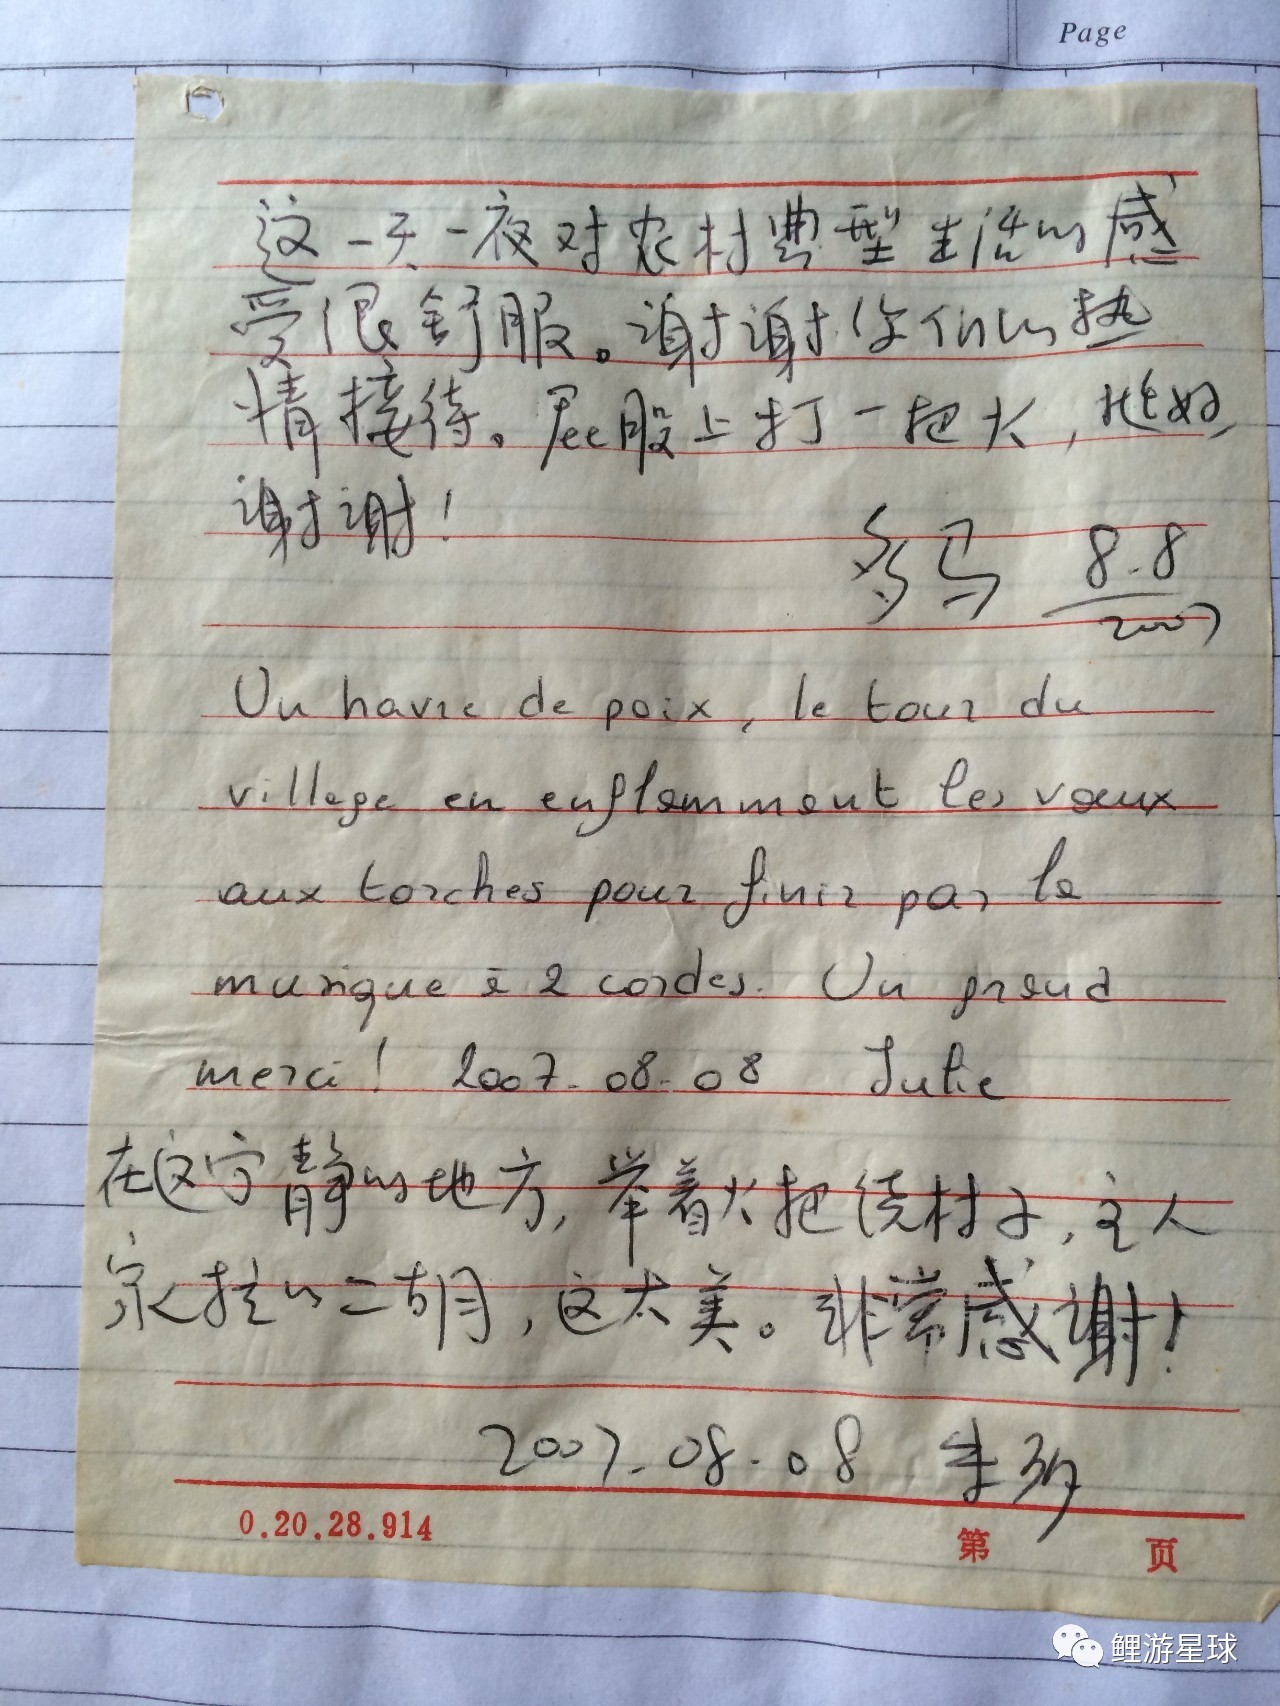 Page
这一天一夜对农村典型生活的感
受很舒服。谢谢你们的热
情接待。屁股上打一把火，挺好，
谢谢！
多马 8.8
2007
Un havre de paix, le tour du
village en enflammant les vœux
aux torches pour finir par la
musique à 2 cordes. Un grand
merci! 2007-08-08 Julie
在这宁静的地方，举着火把绕村子，主人
家拉的二胡，这太美。非常感谢！
2007.08.08 朱
0.20.28.914
第 页
鲤游星球